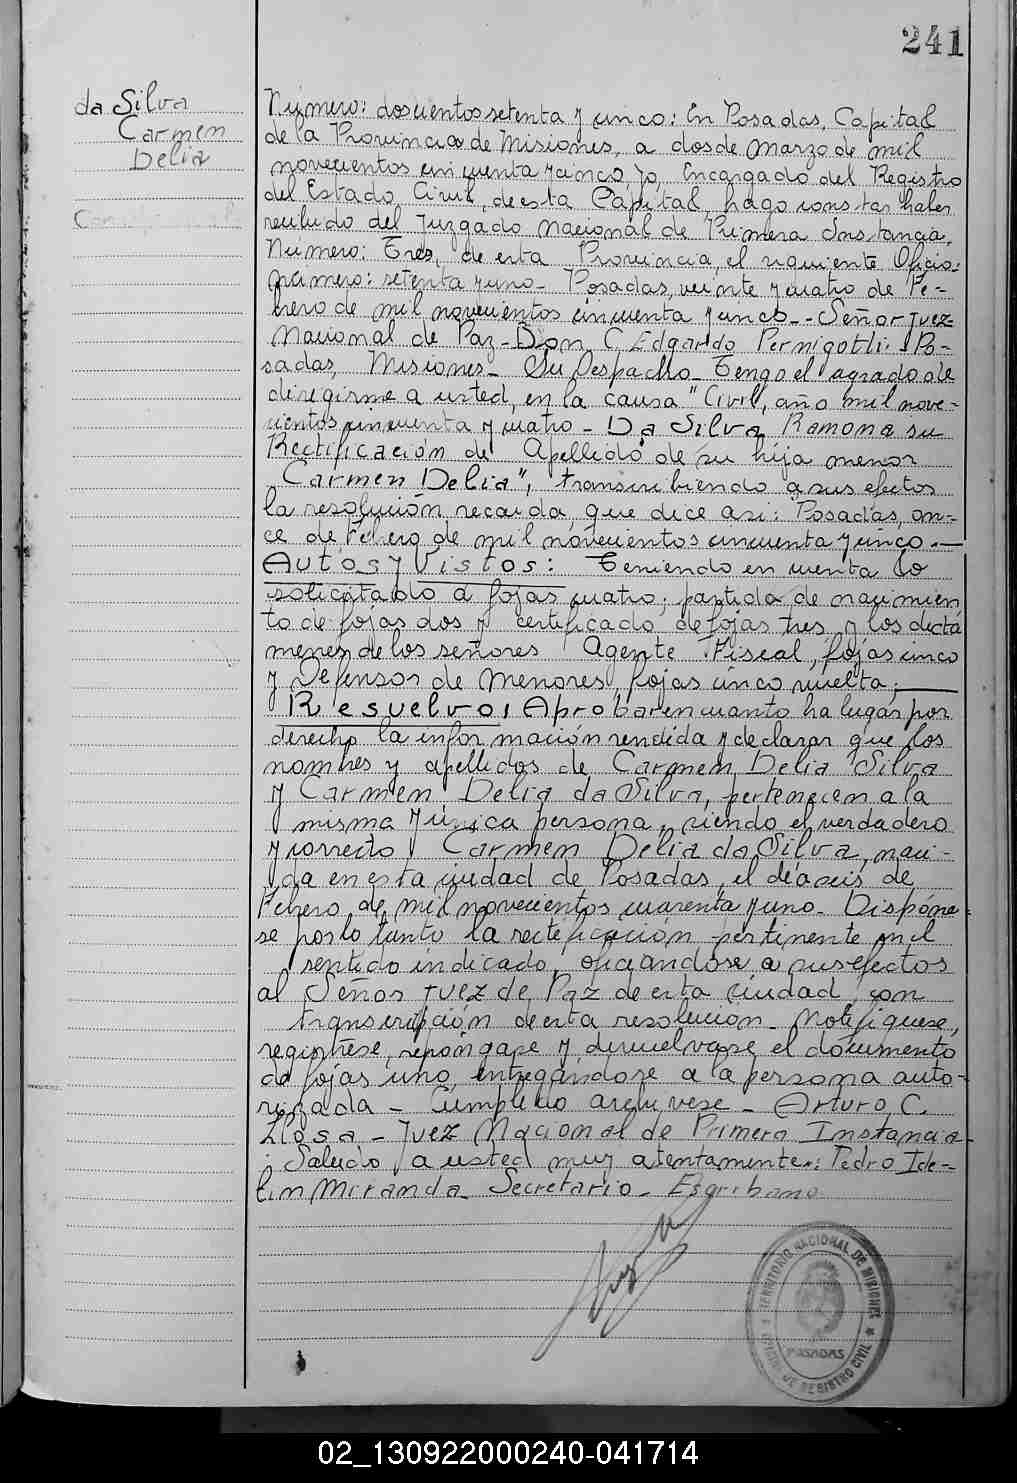 241
da Silva
Carmen
Delia
Número: doscientos setenta y cinco: En Posadas, Capital
de la Provincia de Misiones, a dos de marzo de mil
novecientos cincuenta y cinco, yo, Encargado del Registro
del Estado Civil, de esta Capital, hago constar haber
recibido del Juzgado Nacional de Primera Instancia,
Número: Tres, de esta Provincia, el siguiente Oficio:
número: setenta y uno - Posadas, veinte y cuatro de Fe-
brero de mil novecientos cincuenta y cinco - - Señor Juez
Nacional de Paz - Don C. Edgardo Pernigotti - Po-
sadas, Misiones - Su Despacho - Tengo el agrado de
dirigirme a usted, en la causa "Civil, año mil nove-
cientos cincuenta y cuatro - Da Silva Ramona su
Rectificación de Apellido de su hija menor
Carmen Delia", transcribiendo a sus efectos
la resolución recaida, que dice asi: Posadas, on-
ce de Febrero de mil novecientos cincuenta y cinco. —
Autos y Vistos: Teniendo en cuenta lo
solicitado a fojas cuatro; partida de nacimien
to de fojas dos y certificado de fojas tres y los dictá
menes de los señores Agente Fiscal, fojas cinco
y Defensor de Menores, fojas cinco vuelta; —
Resuelvo, Aprobar en cuanto ha lugar por
derecho la información rendida y declarar que los
nombres y apellidos de Carmen Delia Silva
y Carmen Delia da Silva, pertenecen a la
misma y única persona, siendo el verdadero
y correcto Carmen Delia da Silva, naci-
da en esta ciudad de Posadas, el día seis de
Febrero de mil novecientos cuarenta y uno - Dispóne
se por lo tanto la rectificación pertinente en el
sentido indicado, oficiandose a sus efectos
al Señor Juez de Paz de esta ciudad, con
transcripción de esta resolución - Notifiquese,
registrese, repóngase y devuelvase el documento
de fojas uno, entregándose a la persona auto-
rizada - Cumplido archivese - Arturo C.
Llosa - Juez Nacional de Primera Instancia -
Saludo a usted muy atentamente: Pedro Ide-
lin Miranda Secretario - Escribano
TERRITORIO NACIONAL DE MISIONES
POSADAS
OFICINA DE REGISTRO CIVIL
02_130922000240-041714